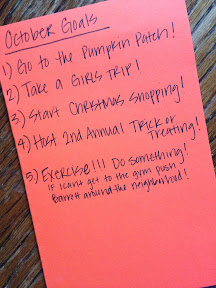 October Goals
1) Go to the Pumpkin Patch!
2) Take a GIRLS TRIP!
3) Start Christmas Shopping!
4) Host 2nd Annual Trick or
Treating!
5) Exercise!!! Do something!
If I can't get to the gym push
Barrett around the neighborhood!